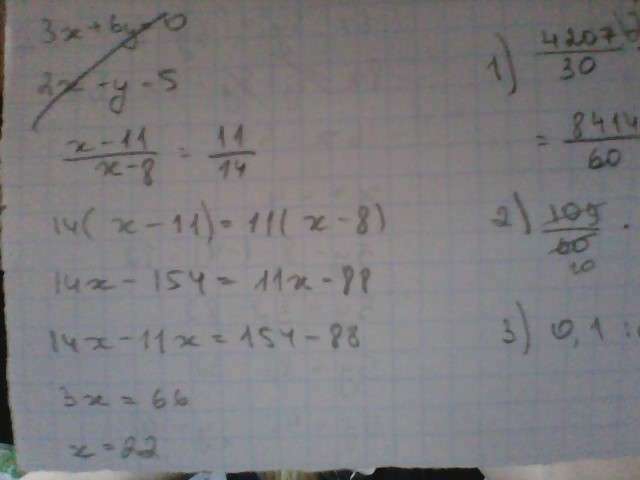 3x + 6y = 0
2x - y - 5
x-11/x-8 = 11/14
14(x-11) = 11(x-8)
14x - 154 = 11x - 88
14x - 11x = 154 - 88
3x = 66
x = 22
1) 4207/30
= 8414/60
2) 105/60 ·
10
3) 0,1 :